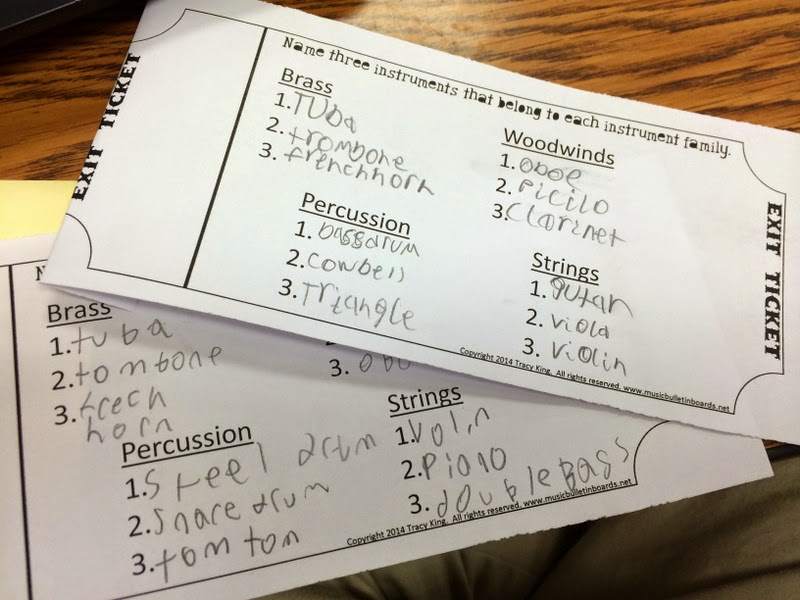 EXIT TICKET
Name three instruments that belong to each instrument family.
Brass
1. Tuba
2. trombone
3. frenchhorn
Woodwinds
1. oboe
2. picilo
3. clarinet
Percussion
1. bassdrum
2. cowbell
3. Triangle
Strings
1. gutar
2. viola
3. violin
Copyright 2014 Tracy King. All rights reserved. www.musicbulletinboards.net
EXIT TICKET
N
Brass
1. tuba
2. tombone
3. frech
horn
3. obo
Percussion
1. Steel drum
2. snare drum
3. tom tom
Strings
1. volin
2. piano
3. double bass
Copyright 2014 Tracy King. All rights reserved. www.musicbulletinboards.net